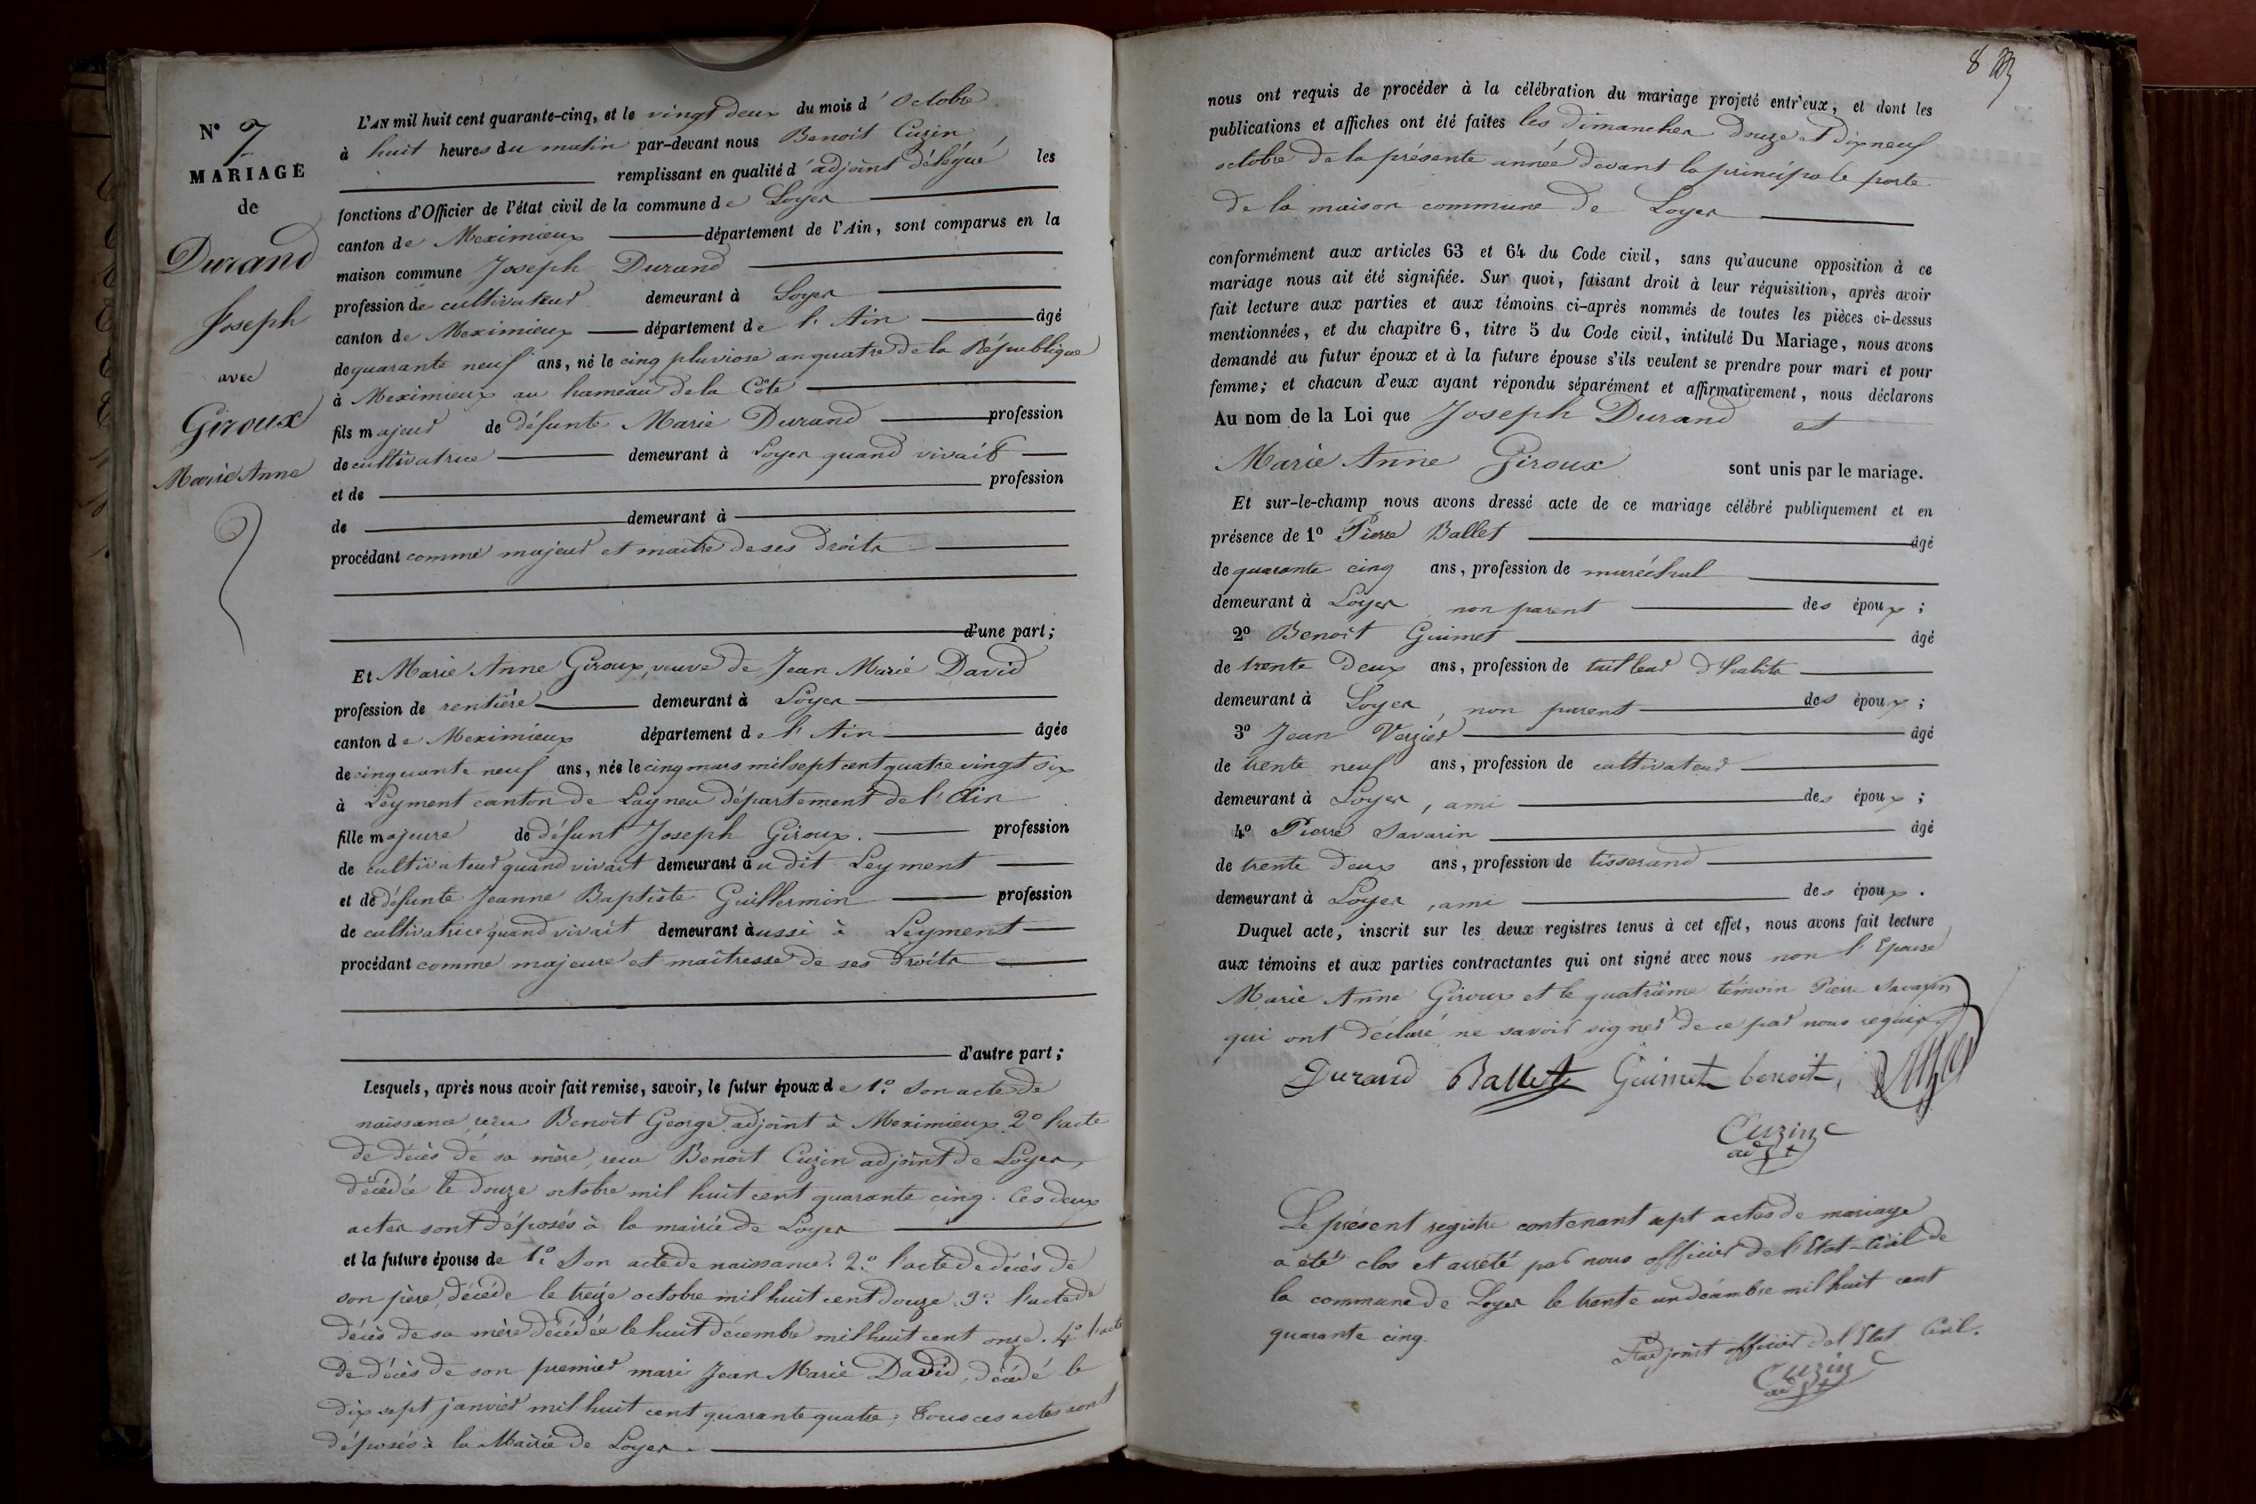 N° 7
MARIAGE
de
Durand
Joseph
avec
Giroux
Marie Anne
L'AN mil huit cent quarante-cinq, et le vingt deux du mois d'Octobre
à huit heures du matin par-devant nous Benoit Cuzin
remplissant en qualité d'adjoint délégué les
fonctions d'Officier de l'état civil de la commune de Loyes
canton de Meximieux département de l'Ain, sont comparus en la
maison commune Joseph Durand
profession de cultivateur demeurant à Loyes
canton de Meximieux département de l'Ain âgé
de quarante neuf ans, né le cinq pluviose an quatre de la République
à Meximieux au hameau de la Côte
fils majeur de défunte Marie Durand profession
de cultivatrice demeurant à Loyes quand vivait
et de profession
de demeurant à
procédant comme majeur et maitre de ses droits
d'une part;
Et Marie Anne Giroux, veuve de Jean Marie David
profession de rentière demeurant à Loyes
canton de Meximieux département de l'Ain âgée
de cinquante neuf ans, née le cinq mars mil sept cent quatre vingt six
à Leyment canton de Lagneu département de l'Ain
fille majeure de défunt Joseph Giroux. profession
de cultivateur quand vivait demeurant au dit Leyment
et de défunte Jeanne Baptiste Guillermin profession
de cultivatrice quand vivait demeurant aussi à Leyment
procédant comme majeure et maîtresse de ses droits
d'autre part;
Lesquels, après nous avoir fait remise, savoir, le futur époux de 1° son acte de
naissance, reçu Benoit George adjoint à Meximieux 2° l'acte
de décès de sa mère, reçu Benoit Cuzin adjoint de Loyes,
décédée le douze octobre mil huit cent quarante cinq. Ces deux
actes sont déposés à la mairie de Loyes
et la future épouse de 1° Son acte de naissance. 2° l'acte de décès de
son père, décédé le treize octobre mil huit cent douze. 3° l'acte de
décès de sa mère décédée le huit décembre mil huit cent onze. 4° l'acte
de décès de son premier mari Jean Marie David, décédé le
dix sept janvier mil huit cent quarante quatre; Tous ces actes sont
déposés à la Mairie de Loyes.
8
nous ont requis de procéder à la célébration du mariage projeté entr'eux, et dont les
publications et affiches ont été faites les dimanches douze et dix neuf
octobre de la présente année devant la principale porte
de la maison commune de Loyes
conformément aux articles 63 et 64 du Code civil, sans qu'aucune opposition à ce
mariage nous ait été signifiée. Sur quoi, faisant droit à leur réquisition, après avoir
fait lecture aux parties et aux témoins ci-après nommés de toutes les pièces ci-dessus
mentionnées, et du chapitre 6, titre 5 du Code civil, intitulé Du Mariage, nous avons
demandé au futur époux et à la future épouse s'ils veulent se prendre pour mari et pour
femme; et chacun d'eux ayant répondu séparément et affirmativement, nous déclarons
Au nom de la Loi que Joseph Durand et
Marie Anne Giroux sont unis par le mariage.
Et sur-le-champ nous avons dressé acte de ce mariage célébré publiquement et en
présence de 1° Pierre Ballet âgé
de quarante cinq ans, profession de maréchal
demeurant à Loyes non parent des époux;
2° Benoit Guimet âgé
de trente deux ans, profession de tailleur d'habits
demeurant à Loyes, non parent des époux;
3° Jean Verzier âgé
de trente neuf ans, profession de cultivateur
demeurant à Loyes, ami des époux;
4° Pierre Savarin âgé
de trente deux ans, profession de tisserand
demeurant à Loyes, ami des époux.
Duquel acte, inscrit sur les deux registres tenus à cet effet, nous avons fait lecture
aux témoins et aux parties contractantes qui ont signé avec nous non l'Epouse
Marie Anne Giroux et le quatrième témoin Pierre Savarin
qui ont déclaré ne savoir signer de ce par nous requis.
Durand Ballet Guimet benoit,
Cuzin
adjt
Le présent registre contenant sept actes de mariage
a été clos et arrêté par nous officier de l'Etat-Civil de
la commune de Loyes le trente un décembre mil huit cent
quarante cinq.
L'adjoint officier de l'Etat Civil.
Cuzin
adjt